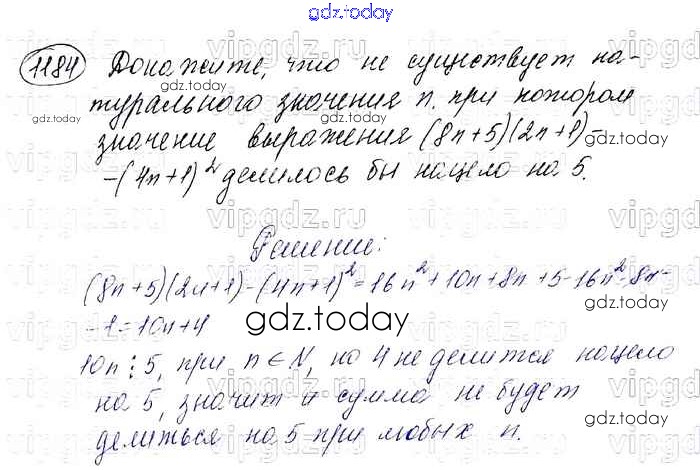 gdz.today
1184 Докажите, что не существует на-
турального значения n, при котором
значение выражения (8n+5)(2n+1)-
-(4n+1)² делилось бы нацело на 5.
Решение:
(8n+5)(2n+1)-(4n+1)²=16n²+10n+8n+5-16n²-8n-
-1=10n+4
gdz.today
10n⋮5, при n∈N, но 4 не делится нацело
на 5, значит и сумма не будет
делиться на 5 при любых n.